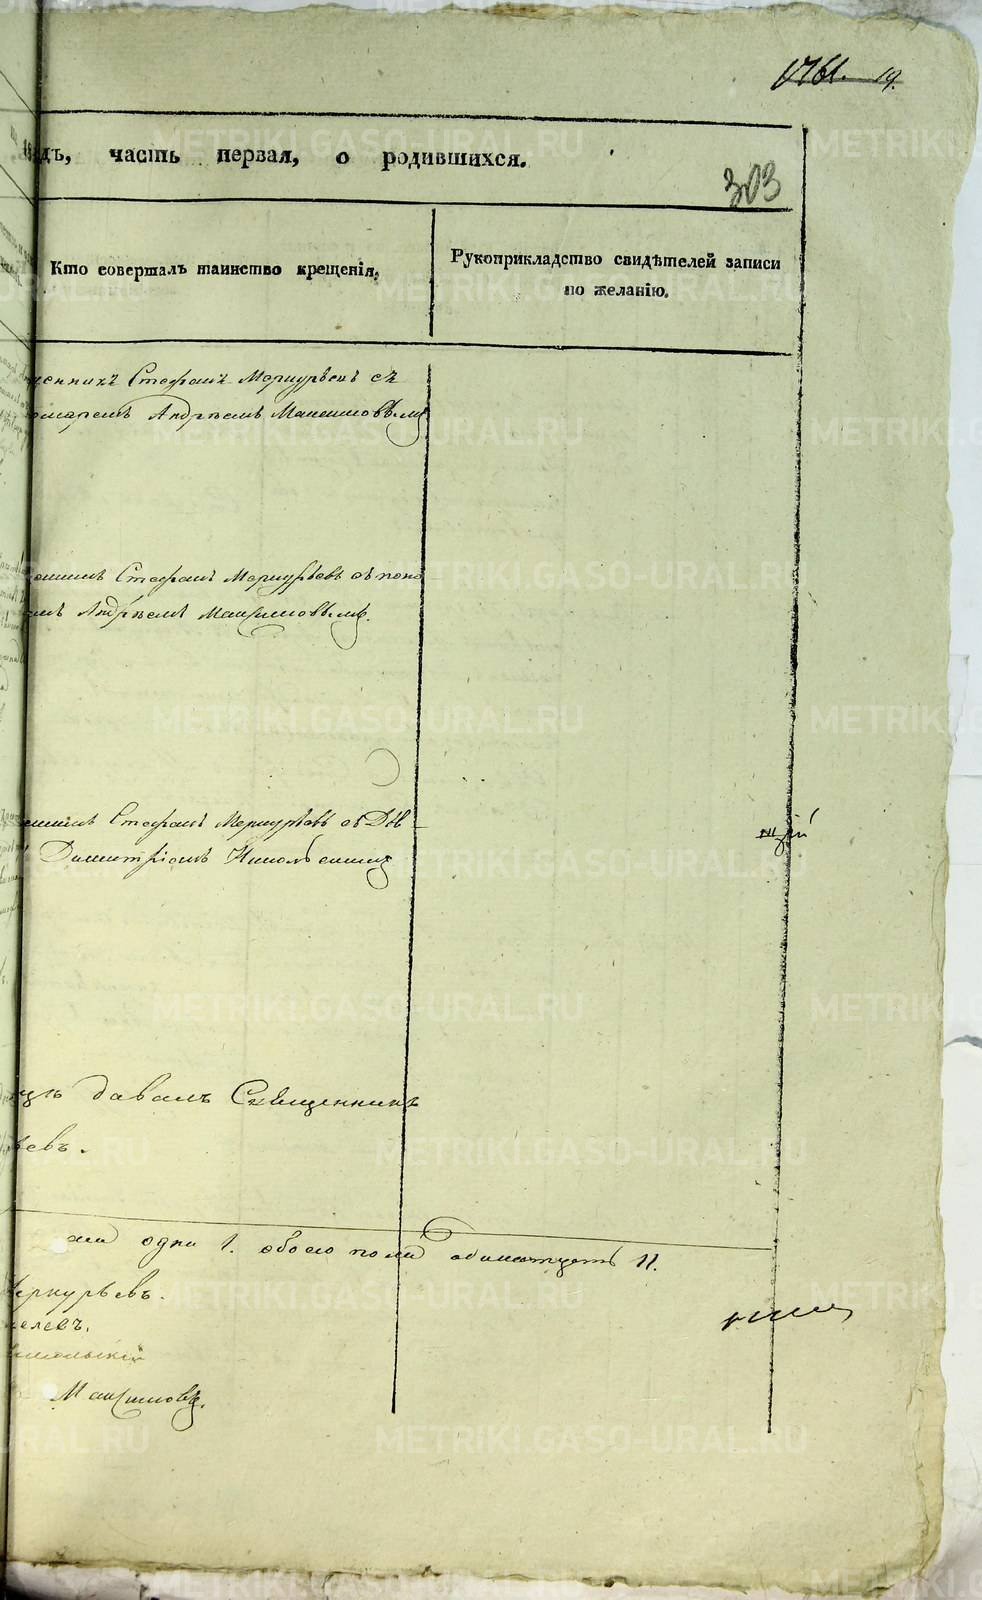 1761. 19.
дъ, часть первая, о родившихся.
303
Кто совершалъ таинство крещенія.
Рукоприкладство свидѣтелей записи
по желанію.
щенникъ Стефанъ Меркурьевъ съ
номаремъ Андреемъ Максимовымъ
Стефанъ Меркурьевъ съ поно
Андреемъ Максимовымъ.
Стефанъ Меркурьевъ съ Дья
Димитріемъ
щій
давалъ Священникъ
евъ.
одна 1. обоего пола одинатцеть 11.
Меркурьевъ.
елевъ.
Максимовъ.
METRIKI.GASO-URAL.RU